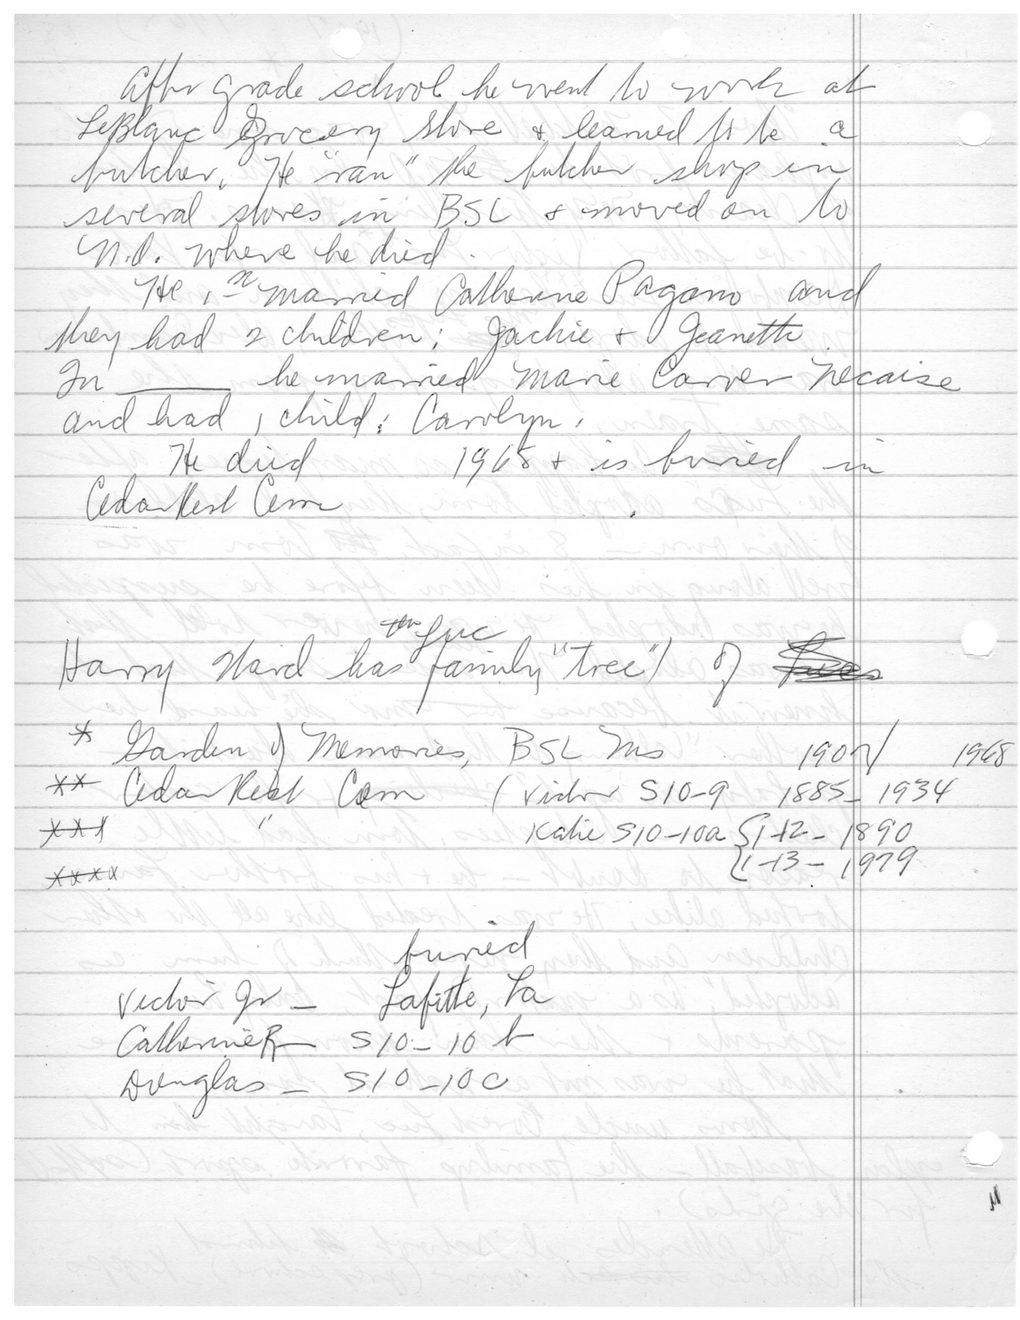 After grade school he went to work at
LeBlanc Grocery Store & learned to be a
butcher. He "ran" the butcher shop in
several stores in BSL & moved on to
N.O. where he died.
He married Catherine Pagano and
they had 2 children: Jackie & Jeanette.
In ______ he married Marie Carver Necaise
and had 1 child: Carolyn.
He died 1968 & is buried in
Cedar Rest Cem
the Luc
Harry Ward has family "tree") of
* Garden of Memories, BSL Ms 1907/ 1968
** Cedar Rest Cem (Victor S10-9 1885-1934
*** " Katie S10-10a {1-12-1890
**** {1-13-1979
buried
Victor Jr - Lafitte, La
Catherine R - S10-10b
Douglas - S10-10c